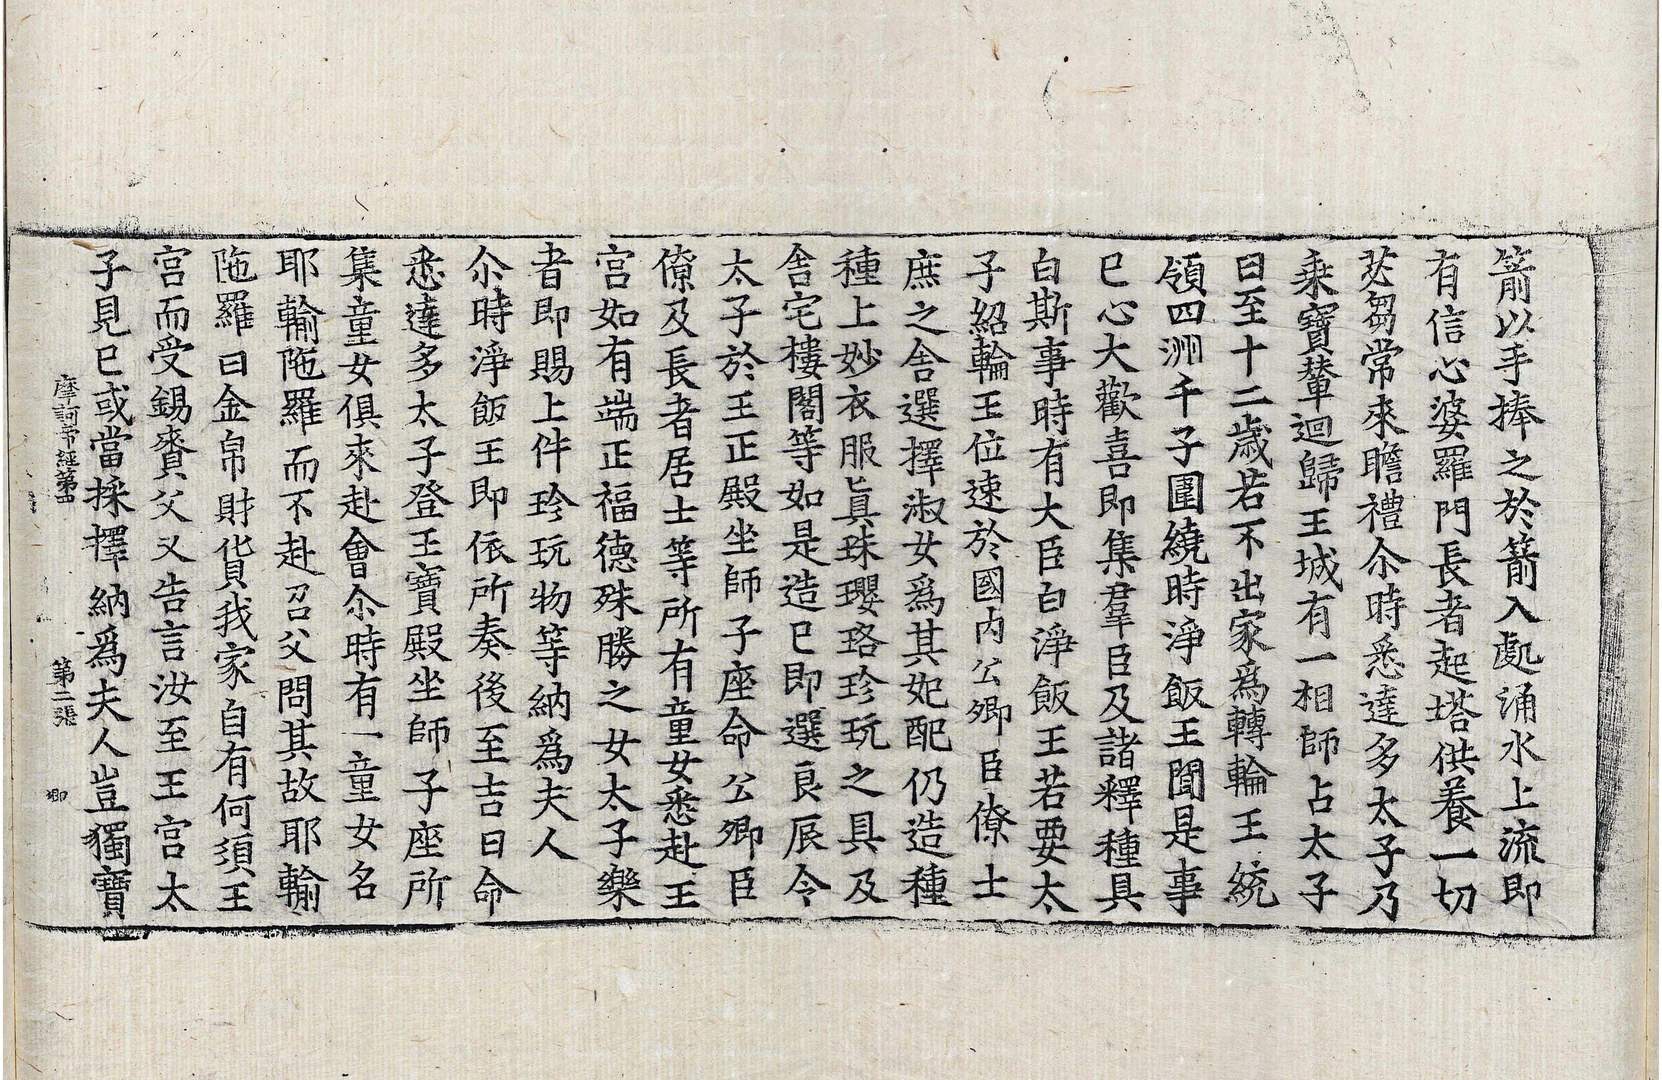 箭以手捧之於箭入處涌水上流即
有信心婆羅門長者起塔供養一切
苾芻常來瞻禮尒時悉達多太子乃
乘寶輦迴歸王城有一相師占太子
曰至十二歲若不出家爲轉輪王統
領四洲千子圍繞時淨飯王聞是事
巳心大歡喜即集羣臣及諸釋種具
白斯事時有大臣白淨飯王若要太
子紹輪王位速於國內公卿臣僚士
庶之舍選擇淑女爲其妃配仍造種
種上妙衣服眞珠瓔珞珍玩之具及
舍宅樓閣等如是造巳即選良辰令
太子於王正殿坐師子座命公卿臣
僚及長者居士等所有童女悉赴王
宮如有端正福德殊勝之女太子樂
者即賜上件珍玩物等納爲夫人
尒時淨飯王即依所奏後至吉日命
悉達多太子登王寶殿坐師子座所
集童女俱來赴會尒時有一童女名
耶輸陁羅而不赴召父問其故耶輸
陁羅曰金帛財貨我家自有何須王
宮而受錫賚父又告言汝至王宮太
子見巳或當採擇納爲夫人豈獨寶
摩訶帝經第四 第二張 卿